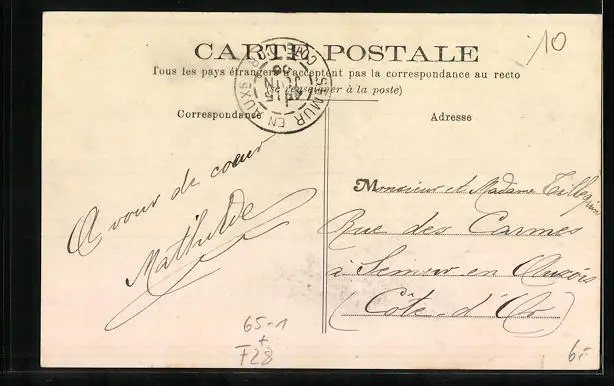 CARTE POSTALE
Tous les pays étrangers n'acceptent pas la correspondance au recto
(se renseigner à la poste)
Correspondance
Adresse
SEMUR EN AUXOIS
COTE D'OR
JUIN
10
A vous de coeur
Mathilde
Monsieur et Madame
Rue des Carmes
à Semur en Auxois
(Côte-d'Or)
65-1
+
F28
6.-